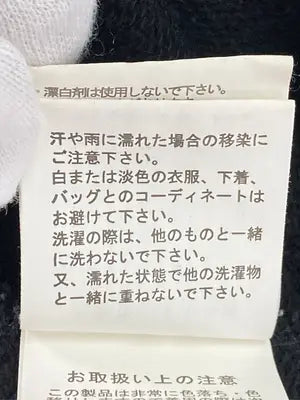 漂白剤は使用しないで下さい。
汗や雨に濡れた場合の移染に
ご注意下さい。
白または淡色の衣服、下着、
バッグとのコーディネートは
お避けて下さい。
洗濯の際は、他のものと一緒
に洗わないで下さい。
又、濡れた状態で他の洗濯物
と一緒に重ねないで下さい。
お取扱い上の注意
この製品は非常に色落ち・色